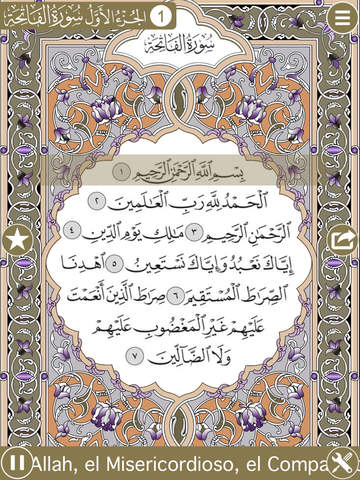 الجزء الأول سورة الفاتحة
1
سُورَةُ الْفَاتِحَةِ
بِسْمِ اللَّهِ الرَّحْمَٰنِ الرَّحِيمِ ١
الْحَمْدُ لِلَّهِ رَبِّ الْعَالَمِينَ ٢
الرَّحْمَٰنِ الرَّحِيمِ ٣ مَالِكِ يَوْمِ الدِّينِ ٤
إِيَّاكَ نَعْبُدُ وَإِيَّاكَ نَسْتَعِينُ ٥ اهْدِنَا
الصِّرَاطَ الْمُسْتَقِيمَ ٦ صِرَاطَ الَّذِينَ أَنْعَمْتَ
عَلَيْهِمْ غَيْرِ الْمَغْضُوبِ عَلَيْهِمْ
وَلَا الضَّالِّينَ ٧
Allah, el Misericordioso, el Compa